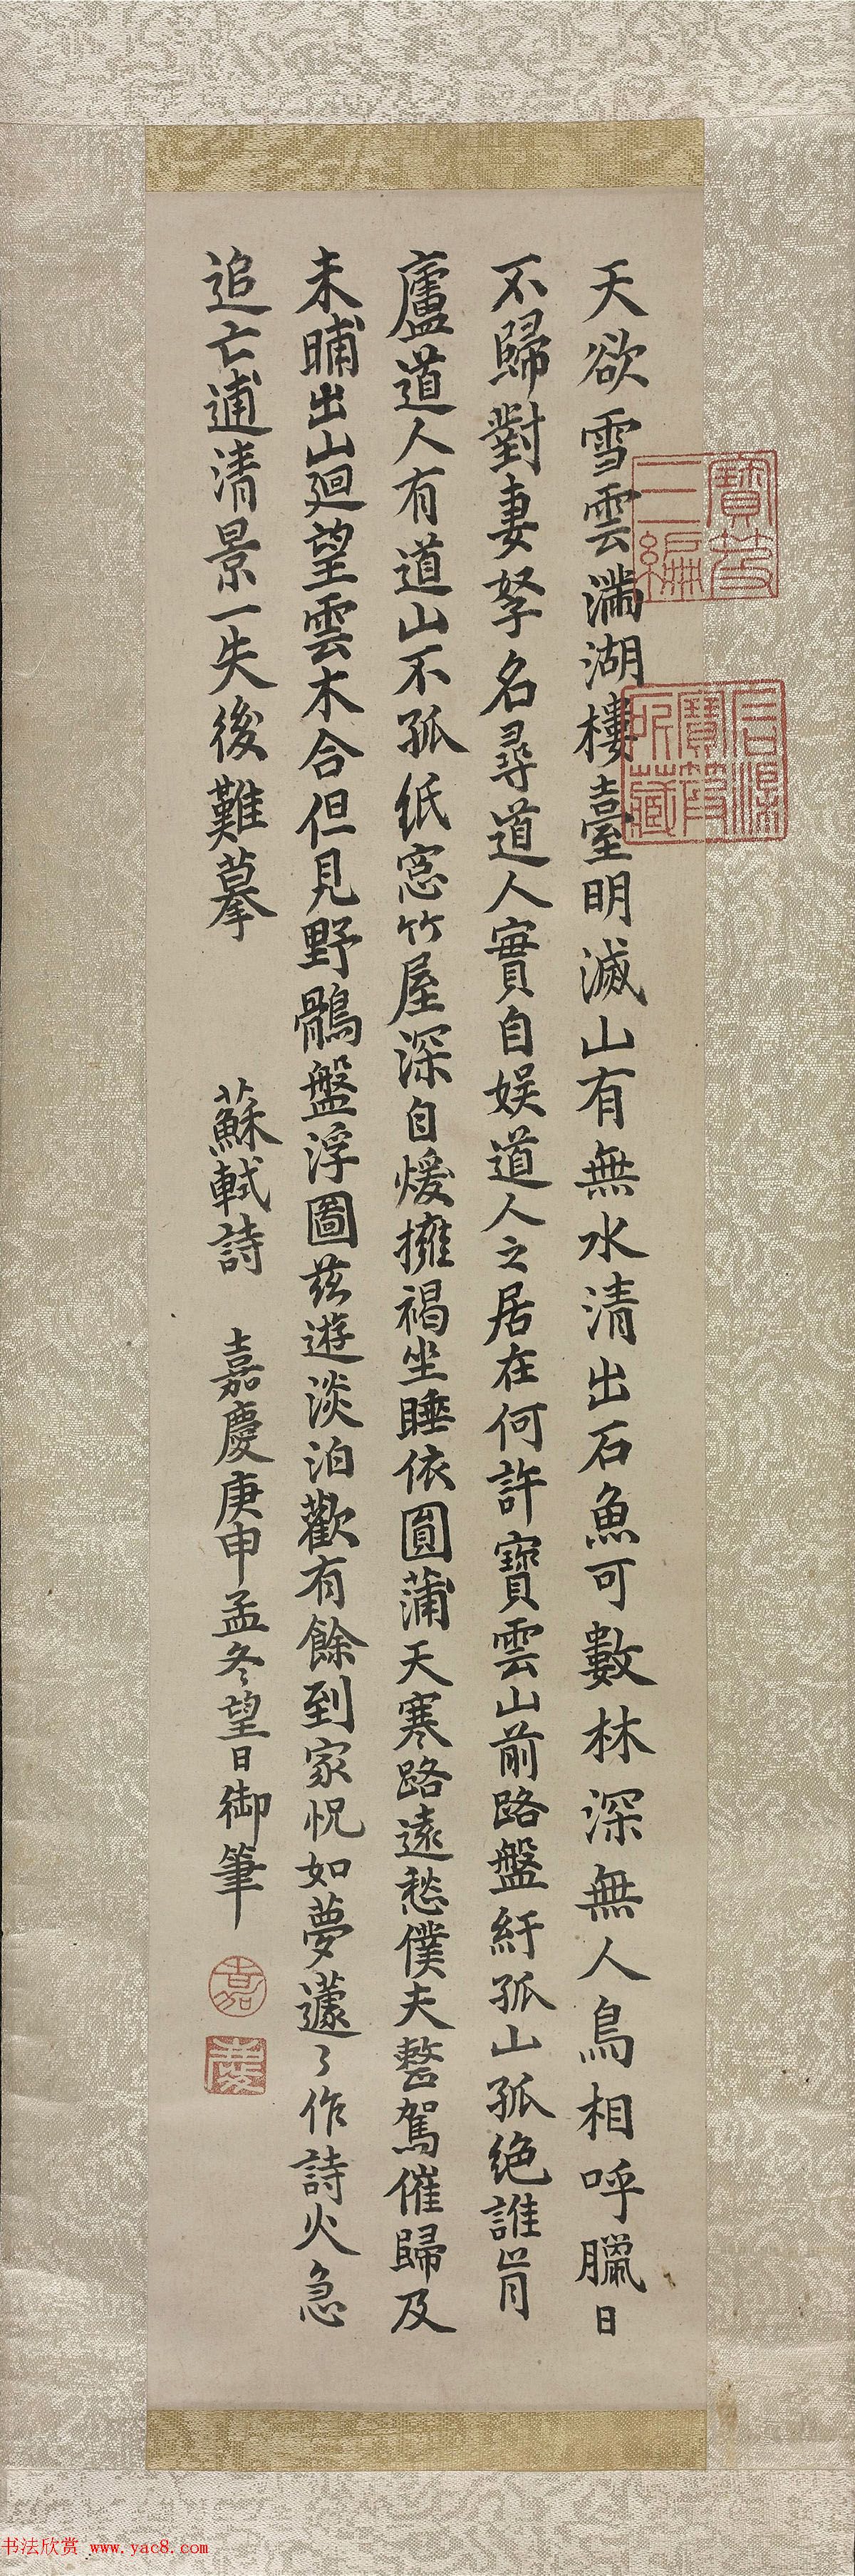 天欲雪雲滿湖樓臺明滅山有無水清出石魚可數林深無人鳥相呼臘日
不歸對妻孥名尋道人實自娛道人之居在何許寶雲山前路盤紆孤山孤絶誰肯
廬道人有道山不孤紙窓竹屋深自煖擁褐坐睡依圓蒲天寒路遠愁僕夫整駕催歸及
未晡出山迴望雲木合但見野鶻盤浮圖茲遊淡泊歡有餘到家怳如夢蘧〻作詩火急
追亡逋清景一失後難摹
蘇軾詩
嘉慶庚申孟冬望日御筆
嘉
慶
寶笈
三編
石渠
寶笈
所藏
书法欣赏 www.yac8.com